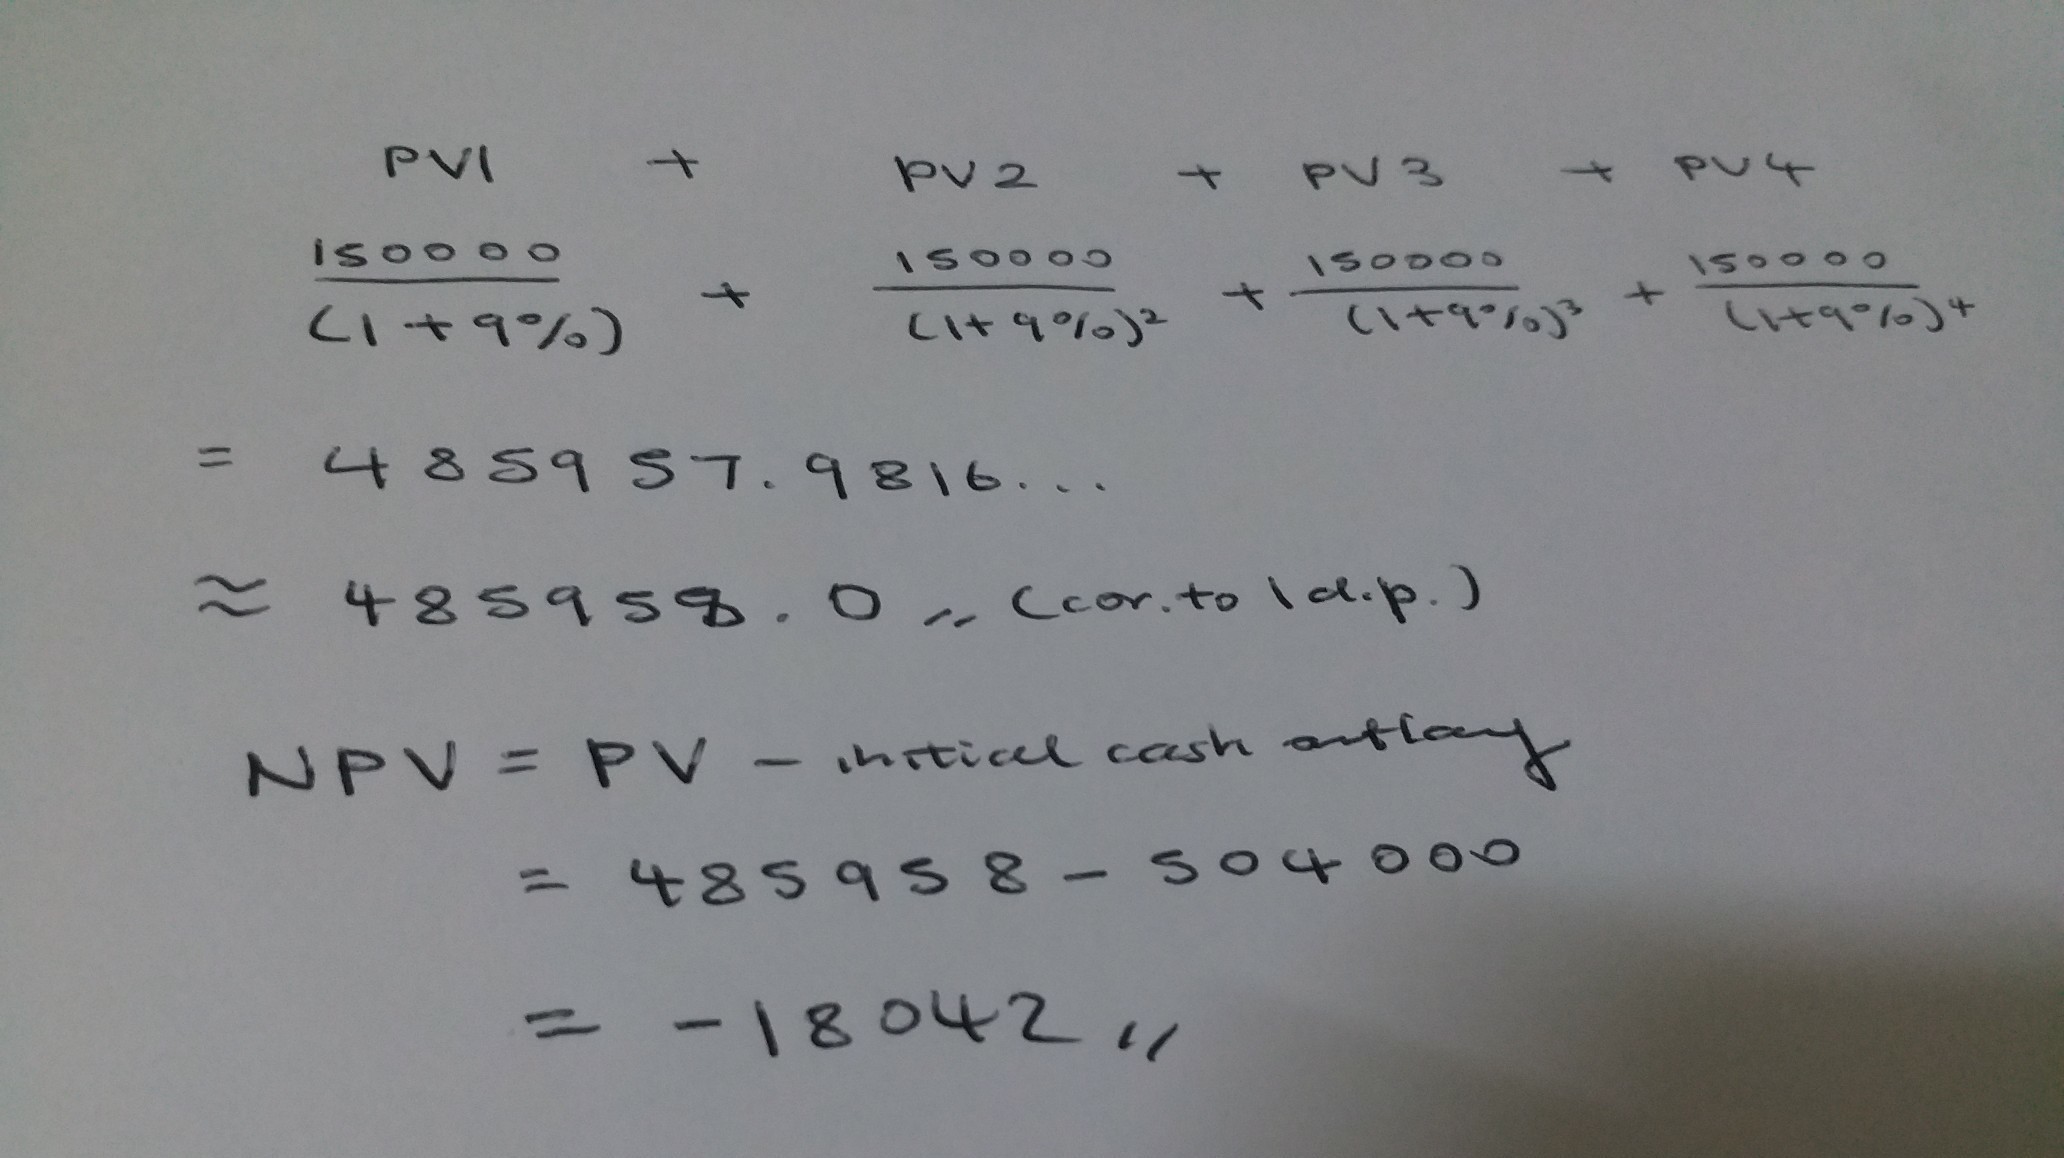 PV1 + PV2 + PV3 + PV4
150000/(1+9%) + 150000/(1+9%)² + 150000/(1+9%)³ + 150000/(1+9%)⁴
= 485957.9816...
≈ 485958.0 〃 (cor. to 1 d.p.)
NPV = PV - initial cash outlay
= 485958 - 504000
= -18042 〃